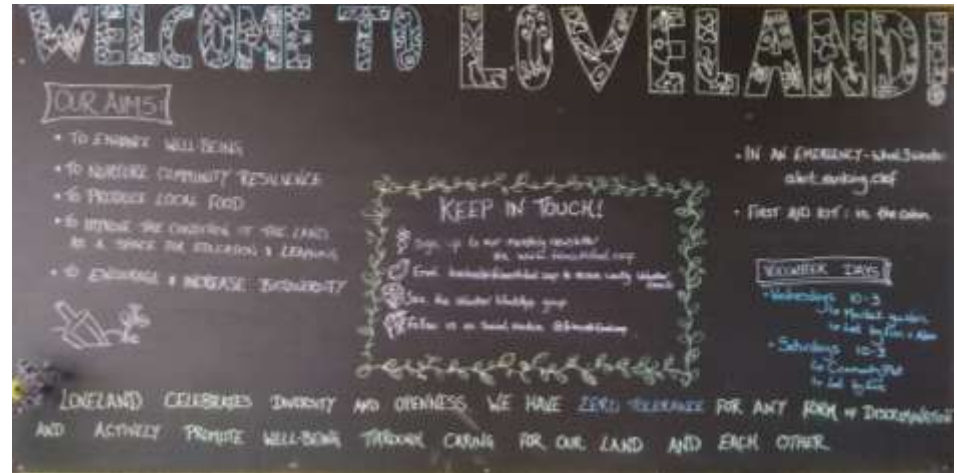 WELCOME TO LOVELAND!
OUR AIMS:
• TO ENHANCE WELL-BEING
• TO NURTURE COMMUNITY RESILIENCE
• TO PRODUCE LOCAL FOOD
• TO IMPROVE THE CONDITION OF THE LAND
AS A SPACE FOR EDUCATION & LEARNING
• TO ENCOURAGE & INCREASE BIODIVERSITY
KEEP IN TOUCH!
Sign up to our monthly newsletter
Email to receive weekly volunteer emails
Join the volunteer WhatsApp group
Follow us on Social media
• IN AN EMERGENCY - what3words
• FIRST AID KIT: in the cabin
VOLUNTEER DAYS
• Wednesdays 10-3
Market garden
led by
• Saturdays 10-3
led by
LOVELAND CELEBRATES DIVERSITY AND OPENNESS. WE HAVE ZERO TOLERANCE FOR ANY FORM OF DISCRIMINATION
AND ACTIVELY PROMOTE WELL-BEING THROUGH CARING FOR OUR LAND AND EACH OTHER